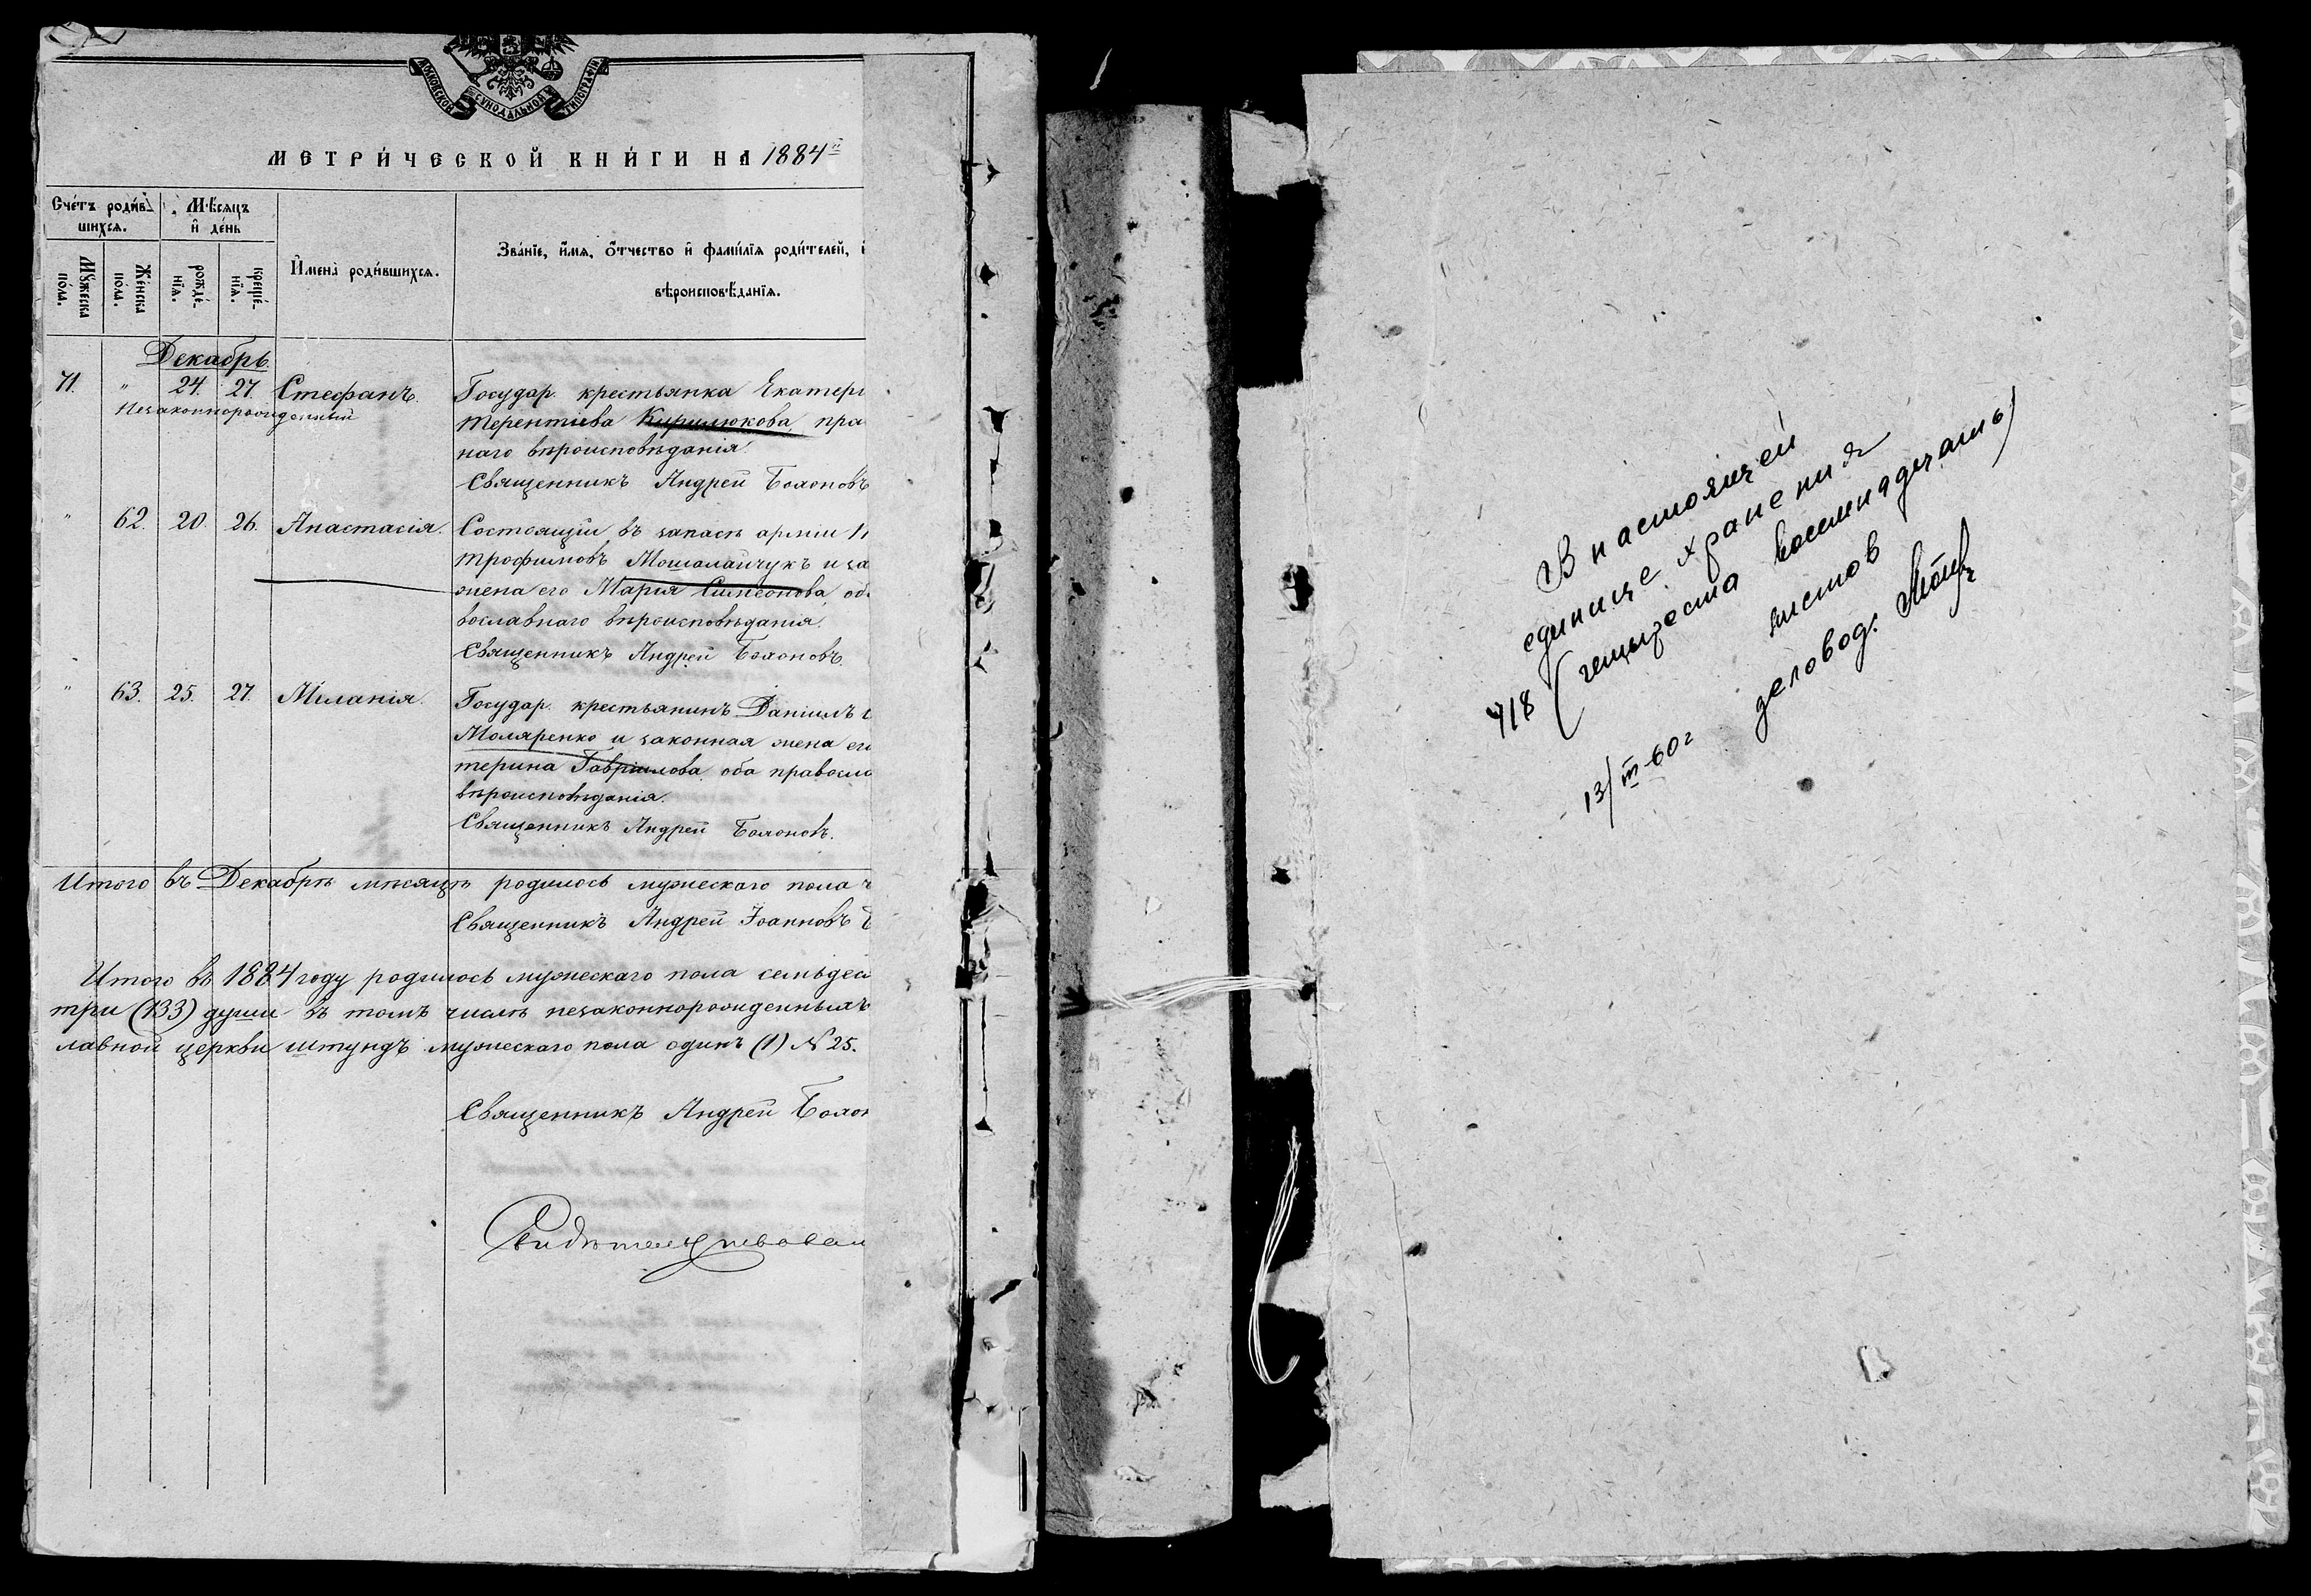 МОСКОВСКОЙ СѴНОДАЛЬНОЙ ТИПОГРАФІИ
МЕТРИ́ЧЕСКОЙ КНИ́ГИ НА 1884й
Сче́тъ роди́в-
шихсѧ.
Мѣ́сѧцъ
и҆ де́нь
И҆мена̀ роди́вшихсѧ.
Зва́нїе, и҆́мѧ, о҆́тчество и҆ фами́лїѧ роди́телей, и҆
вѣроисповѣ́данїѧ.
Мꙋ́жеска
по́ла.
Же́нска
по́ла.
рожде́-
нїѧ.
креще́-
нїѧ.
Декабрь.
71. " 24. 27. Стефанъ. Государ. крестьянка Екатери
Незаконнорожденный
Терентіева Кирилюкова, пра
наго вѣроисповѣданія.
Священникъ Андрей Боxоновъ
" 62. 20. 26. Анастасія. Состоящій въ запасѣ арміи
Трофимовъ Мошалайчукъ и за
жена его Марія Симеонова, об
вославнаго вѣроисповѣданія.
Священникъ Андрей Боxоновъ.
" 63. 25. 27. Меланія. Государ. крестьянинъ Даніилъ
Моляренко и законная жена ег
терина Гавріилова, оба правосла
вѣроисповѣданія.
Священникъ Андрей Боxоновъ.
Итого въ Декабрѣ мѣсяцѣ родилось мужескаго пола
Священникъ Андрей Іоанновъ
Итого въ 1884 году родилось мужескаго пола семьдес
три (133) души въ томъ числѣ незаконнорожденныхъ
лавной церкви штундъ мужескаго пола одинъ (1) № 25.
Священникъ Андрей Боxон
Свидѣтельствовал
В настоящей
единице хранения
418 (четыреста восемнадцать)
листов
13/III-60 г деловод.